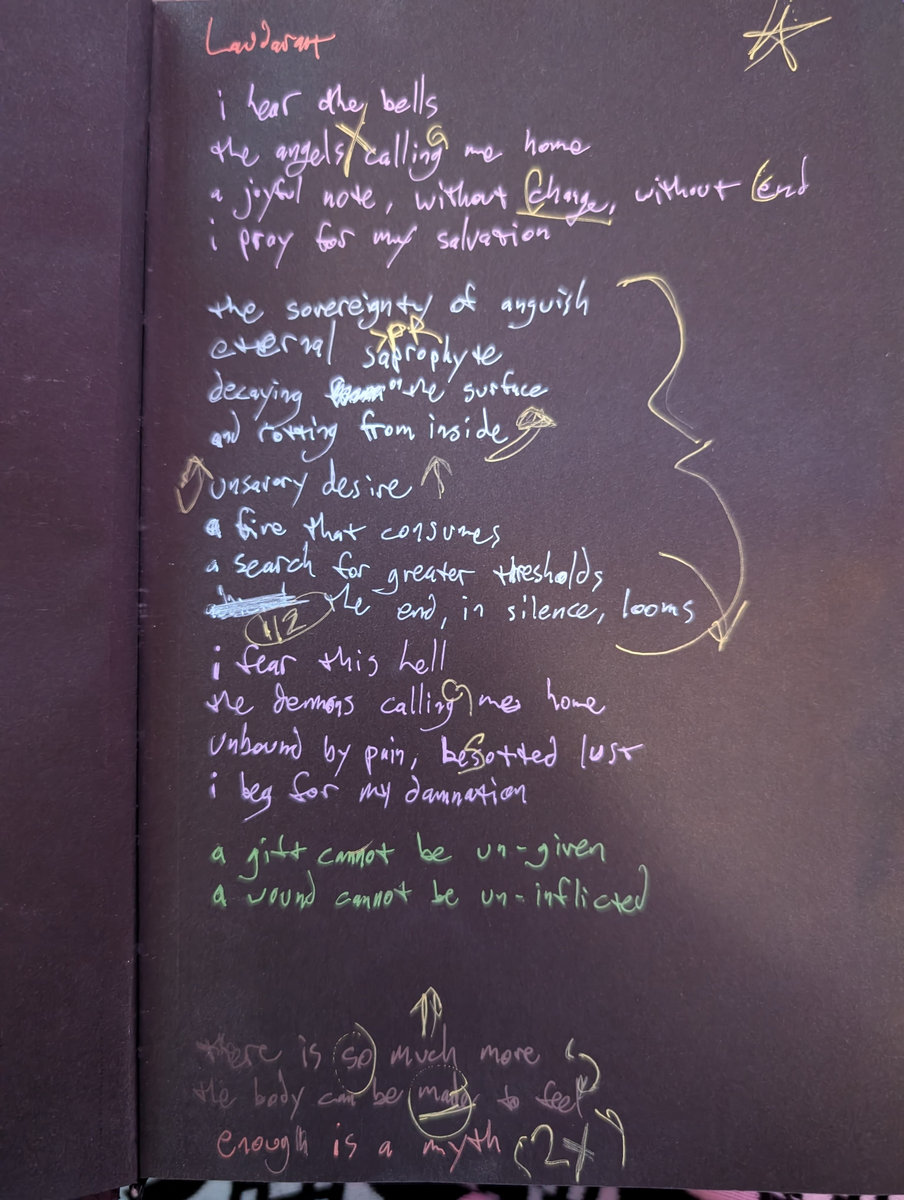 Laudarat
i hear the bells
the angels calling me home
a joyful note, without change, without end
i pray for my salvation
the sovereignty of anguish
eternal saprophyte
decaying on the surface
and rotting from inside
unsavory desire
a fire that consumes
a search for greater thresholds
the end, in silence, looms
i fear this hell
the demons calling me home
unbound by pain, besotted lust
i beg for my damnation
a gift cannot be un-given
a wound cannot be un-inflicted
there is so much more
the body can be made to feel
enough is a myth (2x)